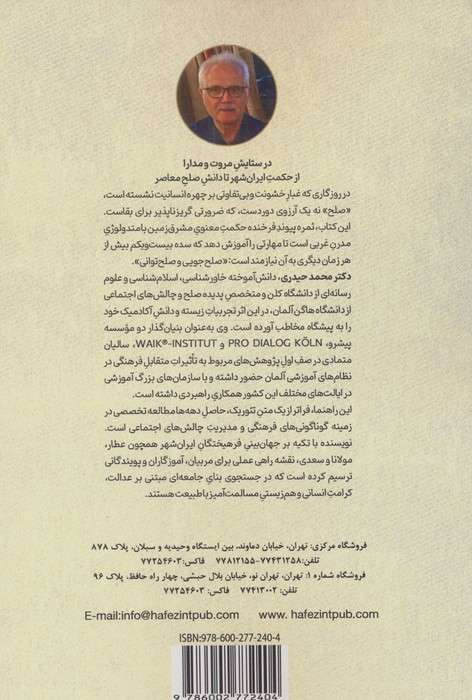 در ستایشِ مروت و مدارا
از حکمتِ ایران‌شهر تا دانشِ صلحِ معاصر
در روزگاری که غبارِ خشونت و بی‌تفاوتی بر چهره انسانیت نشسته است،
«صلح» نه یک آرزوی دوردست، که ضرورتی گریزناپذیر برای بقاست.
این کتاب، ثمره پیوندِ فرخنده حکمتِ معنوی مشرق‌زمین با متدولوژیِ
مدرنِ غربی است تا مهارتی را آموزش دهد که سده بیست‌ویکم بیش از
هر زمان دیگری به آن نیازمند است: «صلح‌جویی و صلح‌توانی».
دکتر محمد حیدری، دانش‌آموخته خاورشناسی، اسلام‌شناسی و علوم
رسانه‌ای از دانشگاه کلن و متخصصِ پدیده صلح و چالش‌های اجتماعی
از دانشگاه هاگن آلمان، در این اثر تجربیاتِ زیسته و دانشِ آکادمیک خود
را به پیشگاه مخاطب آورده است. وی به‌عنوان بنیان‌گذار دو مؤسسه
پیشرو، PRO DIALOG KÖLN و WAIK®-INSTITUT، سالیان
متمادی در صف اولِ پژوهش‌های مربوط به تأثیراتِ متقابلِ فرهنگی در
نظام‌های آموزشی آلمان حضور داشته و با سازمان‌های بزرگ آموزشی
در ایالت‌های مختلف این کشور همکاریِ راهبردی داشته است.
این راهنما، فراتر از یک متنِ تئوریک، حاصلِ دهه‌ها مطالعه تخصصی در
زمینه گوناگونی‌های فرهنگی و مدیریتِ چالش‌های اجتماعی است.
نویسنده با تکیه بر جهان‌بینی فرهیختگانِ ایران‌شهر همچون عطار،
مولانا و سعدی، نقشه راهی عملی برای مربیان، آموزگاران و پویندگانی
ترسیم کرده است که در جستجوی بنایِ جامعه‌ای مبتنی بر عدالت،
کرامتِ انسانی و هم‌زیستیِ مسالمت‌آمیز با طبیعت هستند.
فروشگاه مرکزی: تهران، خیابان دماوند، بین ایستگاه وحیدیه و سبلان، پلاک ۸۷۸
تلفن: ۷۷۴۳۱۲۵۸-۷۷۸۱۲۱۵۵ فاکس: ۷۷۲۵۴۶۰۳
فروشگاه شماره ۱: تهران، تهران نو، خیابان بلال حبشی، چهار راه حافظ، پلاک ۹۶
تلفن: ۷۷۴۱۳۰۰۲ فاکس: ۷۷۲۵۴۶۰۳
E-mail:info@hafezintpub.com www. hafezintpub.com
ISBN:978-600-277-240-4
9 786002 772404